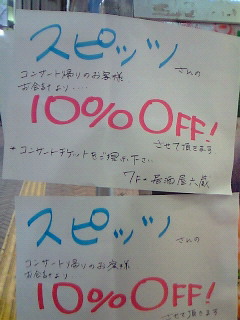 スピッツ さんの
コンサート帰りのお客様
お会計より・・・・
10%OFF!
させて頂きます
*コンサートチケットをご提示下さい
7F 居酒屋六蔵
スピッツ さんの
コンサート帰りのお客様
お会計より
10%OFF!
させて頂きます